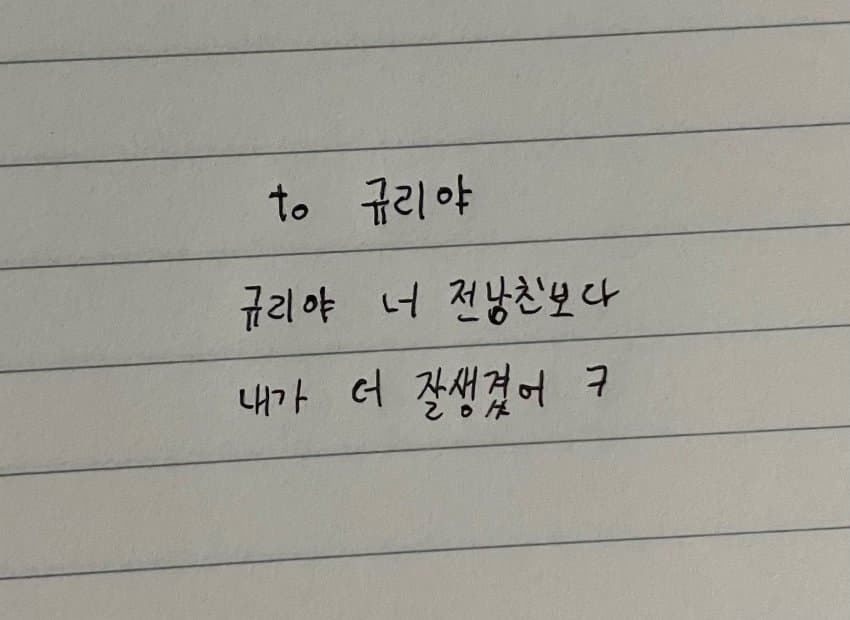 to 규리야
규리야 너 전남친보다
내가 더 잘생겼어 ㅋ